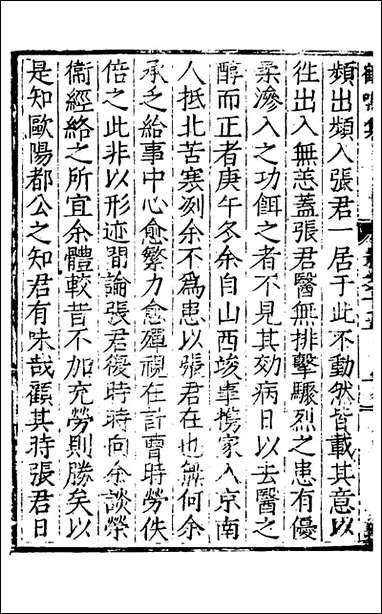 頻出頻入張君一居于此不動然皆載其意以
徃出入無恙蓋張君醫無排擊驟烈之患有優
柔滲入之功餌之者不見其効病日以去醫之
醇而正者庚午冬余自山西竣事㩦家入京南
人抵北苦寒列余不爲患以張君在也無何余
承乏給事中心愈繁力愈殫視在計曹時勞佚
倍之此非以形迹間論張君復時時向余談榮
衞經絡之所宜余體較昔不加充勞則勝矣以
是知歐陽都公之知君有味哉顧其時張君日